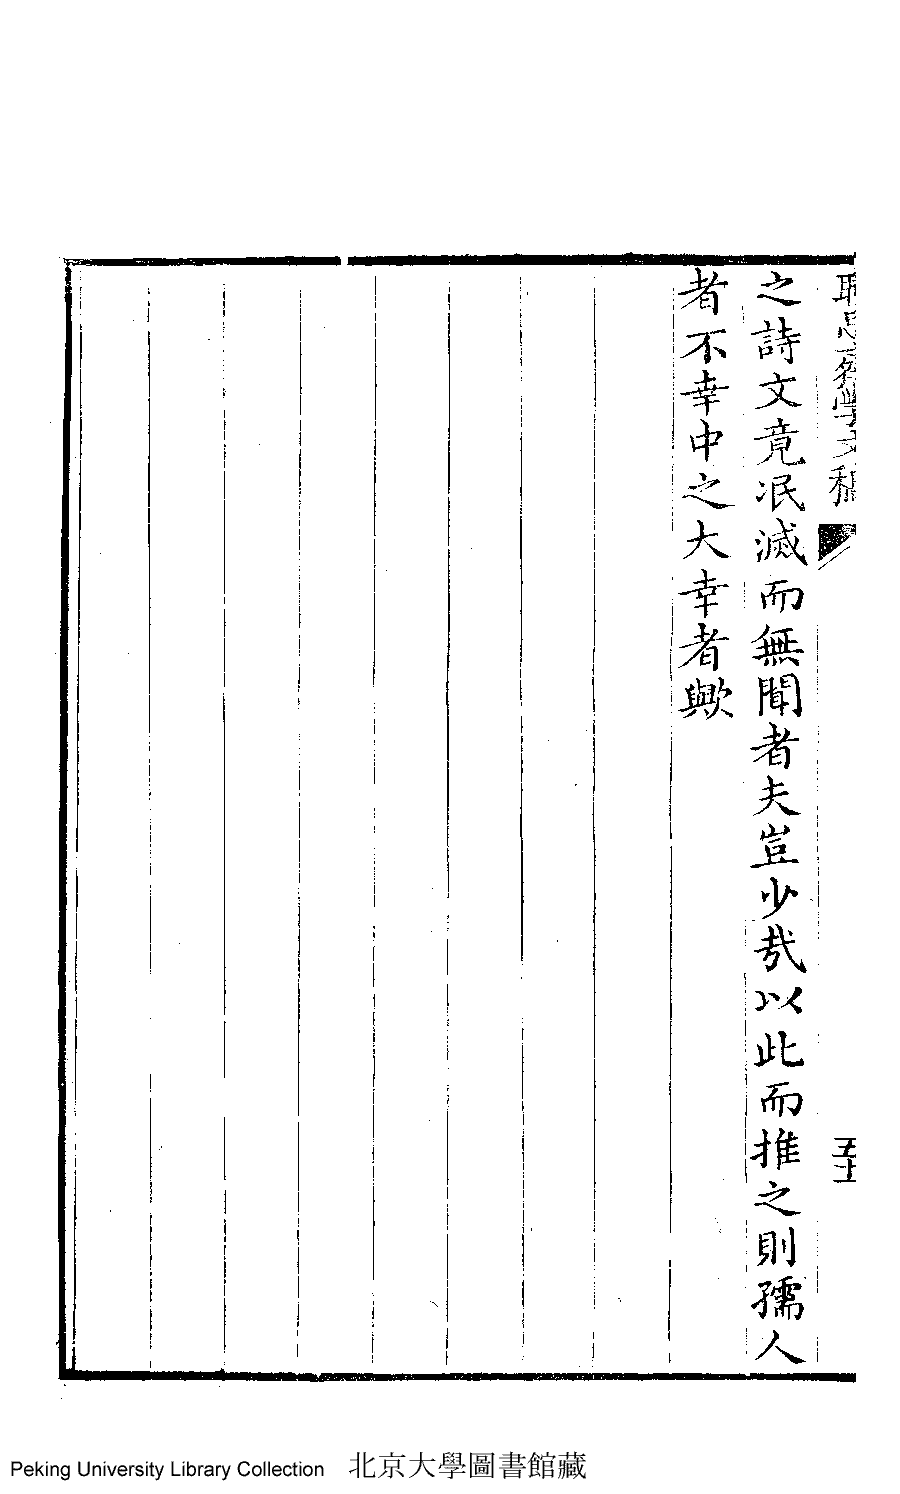 耻思齋學文稿
五十
之詩文竟冺滅而無聞者夫豈少哉以此而推之則孺人
者不幸中之大幸者歟
Peking University Library Collection 北京大學圖書館藏